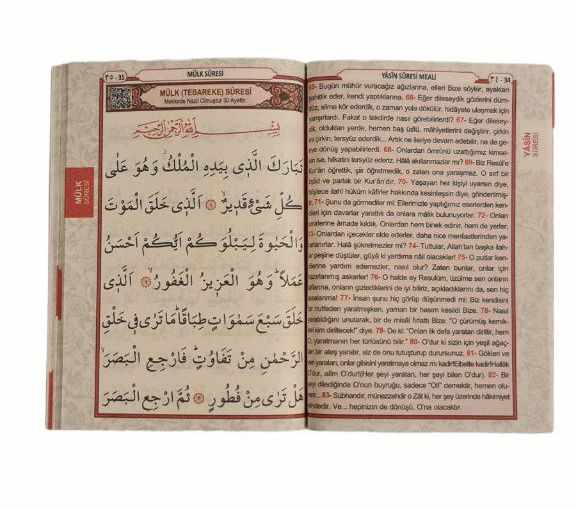 ٣٤ - 34
YÂSÎN SÛRESİ MEALİ
65- Bugün mühür vuracağız ağızlarına, elleri Bize söyler, ayakları
eder, kendi yaptıklarına. 66- Eğer dileseydik gözlerini düm-
silme kör ederdik, o zaman yola dökülür, hidâyete ulaşmak için
Fakat o takdirde nasıl görebilirlerdi? 67- Eğer dileseydik,
oldukları yerde, hemen baş üstü, mâhiyetlerini değiştirir, çirkin
çirkin, tersine ederdik... Artık ne ileriye devam edebilir, na de ge-
dönüş yapabilirlerdi. 68- Onlardan ömrünü uzattığımız kimse-
ise, hilkatini tersyüz ederiz. Hâlâ akıllanmazlar mı? 69- Biz Resûl'e
öğretmedik, o zaten ona yaraşmaz. O sırf bir
öğüt ve parlak bir Kur'ân'dır. 70- Yaşayan her kişiyi uyarsın diye,
ilahi hüküm kâfirler hakkında kesinleşsin diye, gönderilmiş-
71- Şunu da görmediler mi: Ellerimizle yaptığımız eserlerden ken-
için davarlar yarattık da onlara mâlik bulunuyorlar. 72- Onları
emirlerine âmade kıldık. Onlardan hem binek edinir, hem de yerler.
73- Onlardan içecekler elde ederler, daha nice menfaatlerinden ya-
rarlanırlar. Hâlâ şükretmezler mi? 74- Tuttular, Allah'tan başka ilah-
peşine düştüler, güyâ ki yardıma nâil olacaklar! 75- O putlar ken-
dilerine yardım edemezler, nasıl olur? Zaten bunlar, onlar için
hazırlanmış askerler! 76- O halde ey Resulüm, üzülme sen onların
onların gizlediklerini de iyi biliriz, açıkladıklarını da, sen hiç
77- İnsan şunu hiç görüp düşünmedi mi: Biz kendisini
bir nutfeden yaratmışken, yaman bir hasım kesildi Bize. 78- Nasıl
yaratıldığını unutarak, bir de misâl fırlattı Bize: "O çürümüş kemik-
kim diriltecek!" diye. 79- De ki: "Onları ilk defa yaratan diriltir, hem
O, yaratmanın her türlüsünü bilir." 80- O'dur ki sizin için yeşil ağaç-
bir ateş yarattı, siz de onu tutuşturup durursunuz. 81- Gökleri ve
yeri yaratan, onlar gibisini yaratmaya olmaz mı kadir!Elbette kadir!Hallâk
O'dur, alîm O'dur!(Her şeyi yaratan, her şeyi bilen O'dur). 82- Bir
şeyi dilediğinde O'nun buyruğu, sadece "Ol!" demektir, hemen olu-
83- Sübhandır, münezzehdir o Zât ki, her şey üzerinde hâkimiyet
Ve... hepinizin de dönüşü, O'na olacaktır.
YÂSÎN
SÛRESİ
٣٥ - 35
MÜLK SÛRESİ
MÜLK (TEBAREKE) SÛRESİ
Mekkede Nazil Olmuştur 30 Ayettir.
بِسْمِ اللّٰهِ الرَّحْمٰنِ الرَّحِيمِ
تَبَارَكَ الَّذِى بِيَدِهِ الْمُلْكُ وَهُوَ عَلٰى
كُلِّ شَىْءٍ قَدِيرٌ ۙ ۝١ اَلَّذِى خَلَقَ الْمَوْتَ
وَالْحَيٰوةَ لِيَبْلُوَكُمْ اَيُّكُمْ اَحْسَنُ
عَمَلًا ۜ وَهُوَ الْعَزِيزُ الْغَفُورُ ۙ ۝٢ اَلَّذِى
خَلَقَ سَبْعَ سَمٰوَاتٍ طِبَاقًا ۜ مَا تَرٰى فِى خَلْقِ
الرَّحْمٰنِ مِنْ تَفَاوُتٍ ۜ فَارْجِعِ الْبَصَرَ ۙ
هَلْ تَرٰى مِنْ فُطُورٍ ۝٣ ثُمَّ ارْجِعِ الْبَصَرَ
MÜLK
SÛRESİ